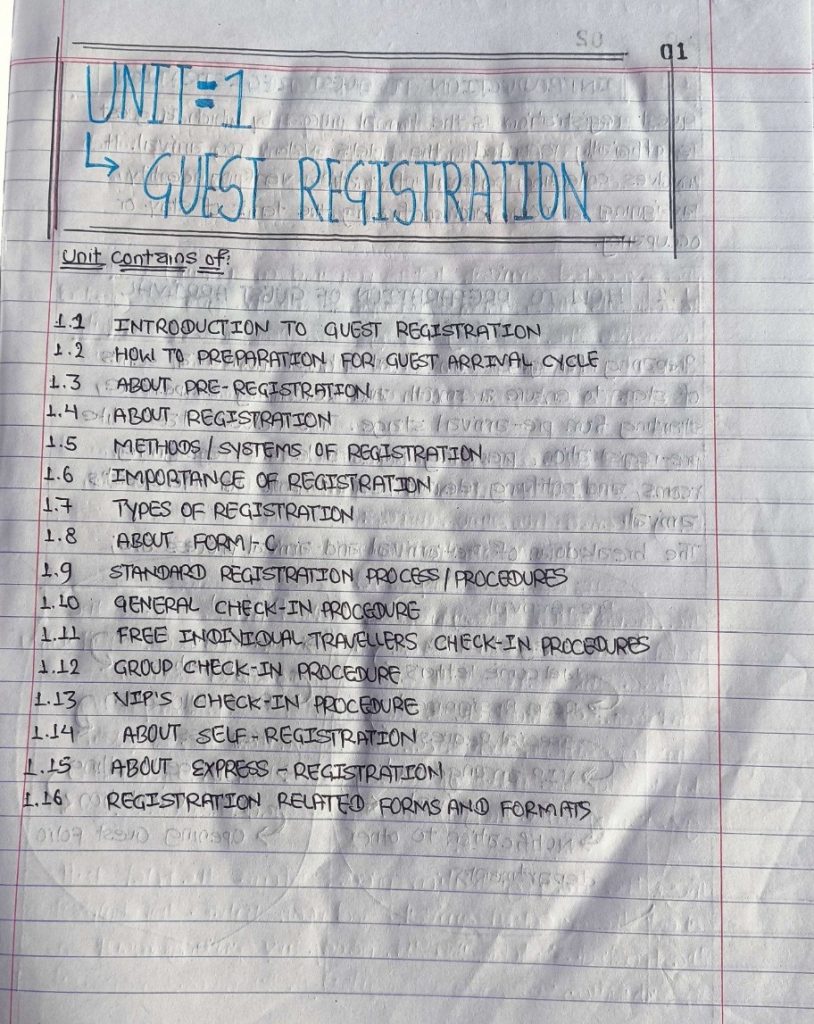 01
UNIT=1
↳ GUEST REGISTRATION
Unit Contains of:
1.1 INTRODUCTION TO GUEST REGISTRATION
1.2 HOW TO PREPARATION FOR GUEST ARRIVAL CYCLE
1.3 ABOUT PRE-REGISTRATION
1.4 ABOUT REGISTRATION
1.5 METHODS/SYSTEMS OF REGISTRATION
1.6 IMPORTANCE OF REGISTRATION
1.7 TYPES OF REGISTRATION
1.8 ABOUT FORM-C
1.9 STANDARD REGISTRATION PROCESS/PROCEDURES
1.10 GENERAL CHECK-IN PROCEDURE
1.11 FREE INDIVIDUAL TRAVELLERS CHECK-IN PROCEDURES
1.12 GROUP CHECK-IN PROCEDURE
1.13 VIP'S CHECK-IN PROCEDURE
1.14 ABOUT SELF-REGISTRATION
1.15 ABOUT EXPRESS-REGISTRATION
1.16 REGISTRATION RELATED FORMS AND FORMATS